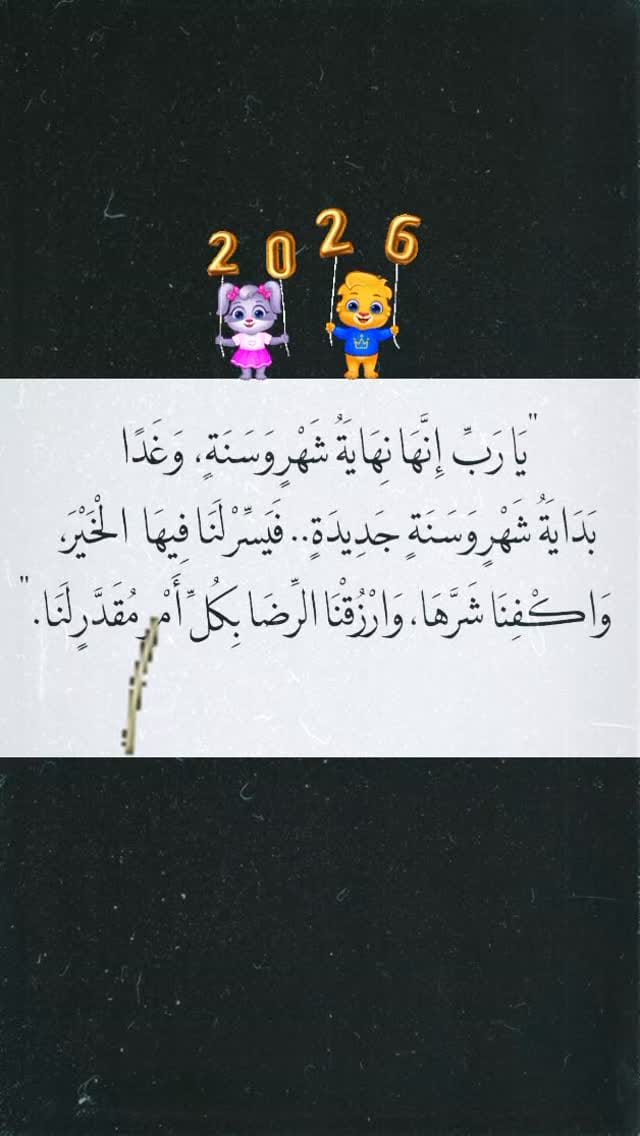 2026
"يَا رَبِّ إِنَّهَا نِهَايَةُ شَهْرٍ وَسَنَةٍ، وَغَدًا
بَدَايَةُ شَهْرٍ وَسَنَةٍ جَدِيدَةٍ.. فَيَسِّرْ لَنَا فِيهَا الْخَيْرَ،
وَاكْفِنَا شَرَّهَا، وَارْزُقْنَا الرِّضَا بِكُلِّ أَمْرٍ مُقَدَّرٍ لَنَا."